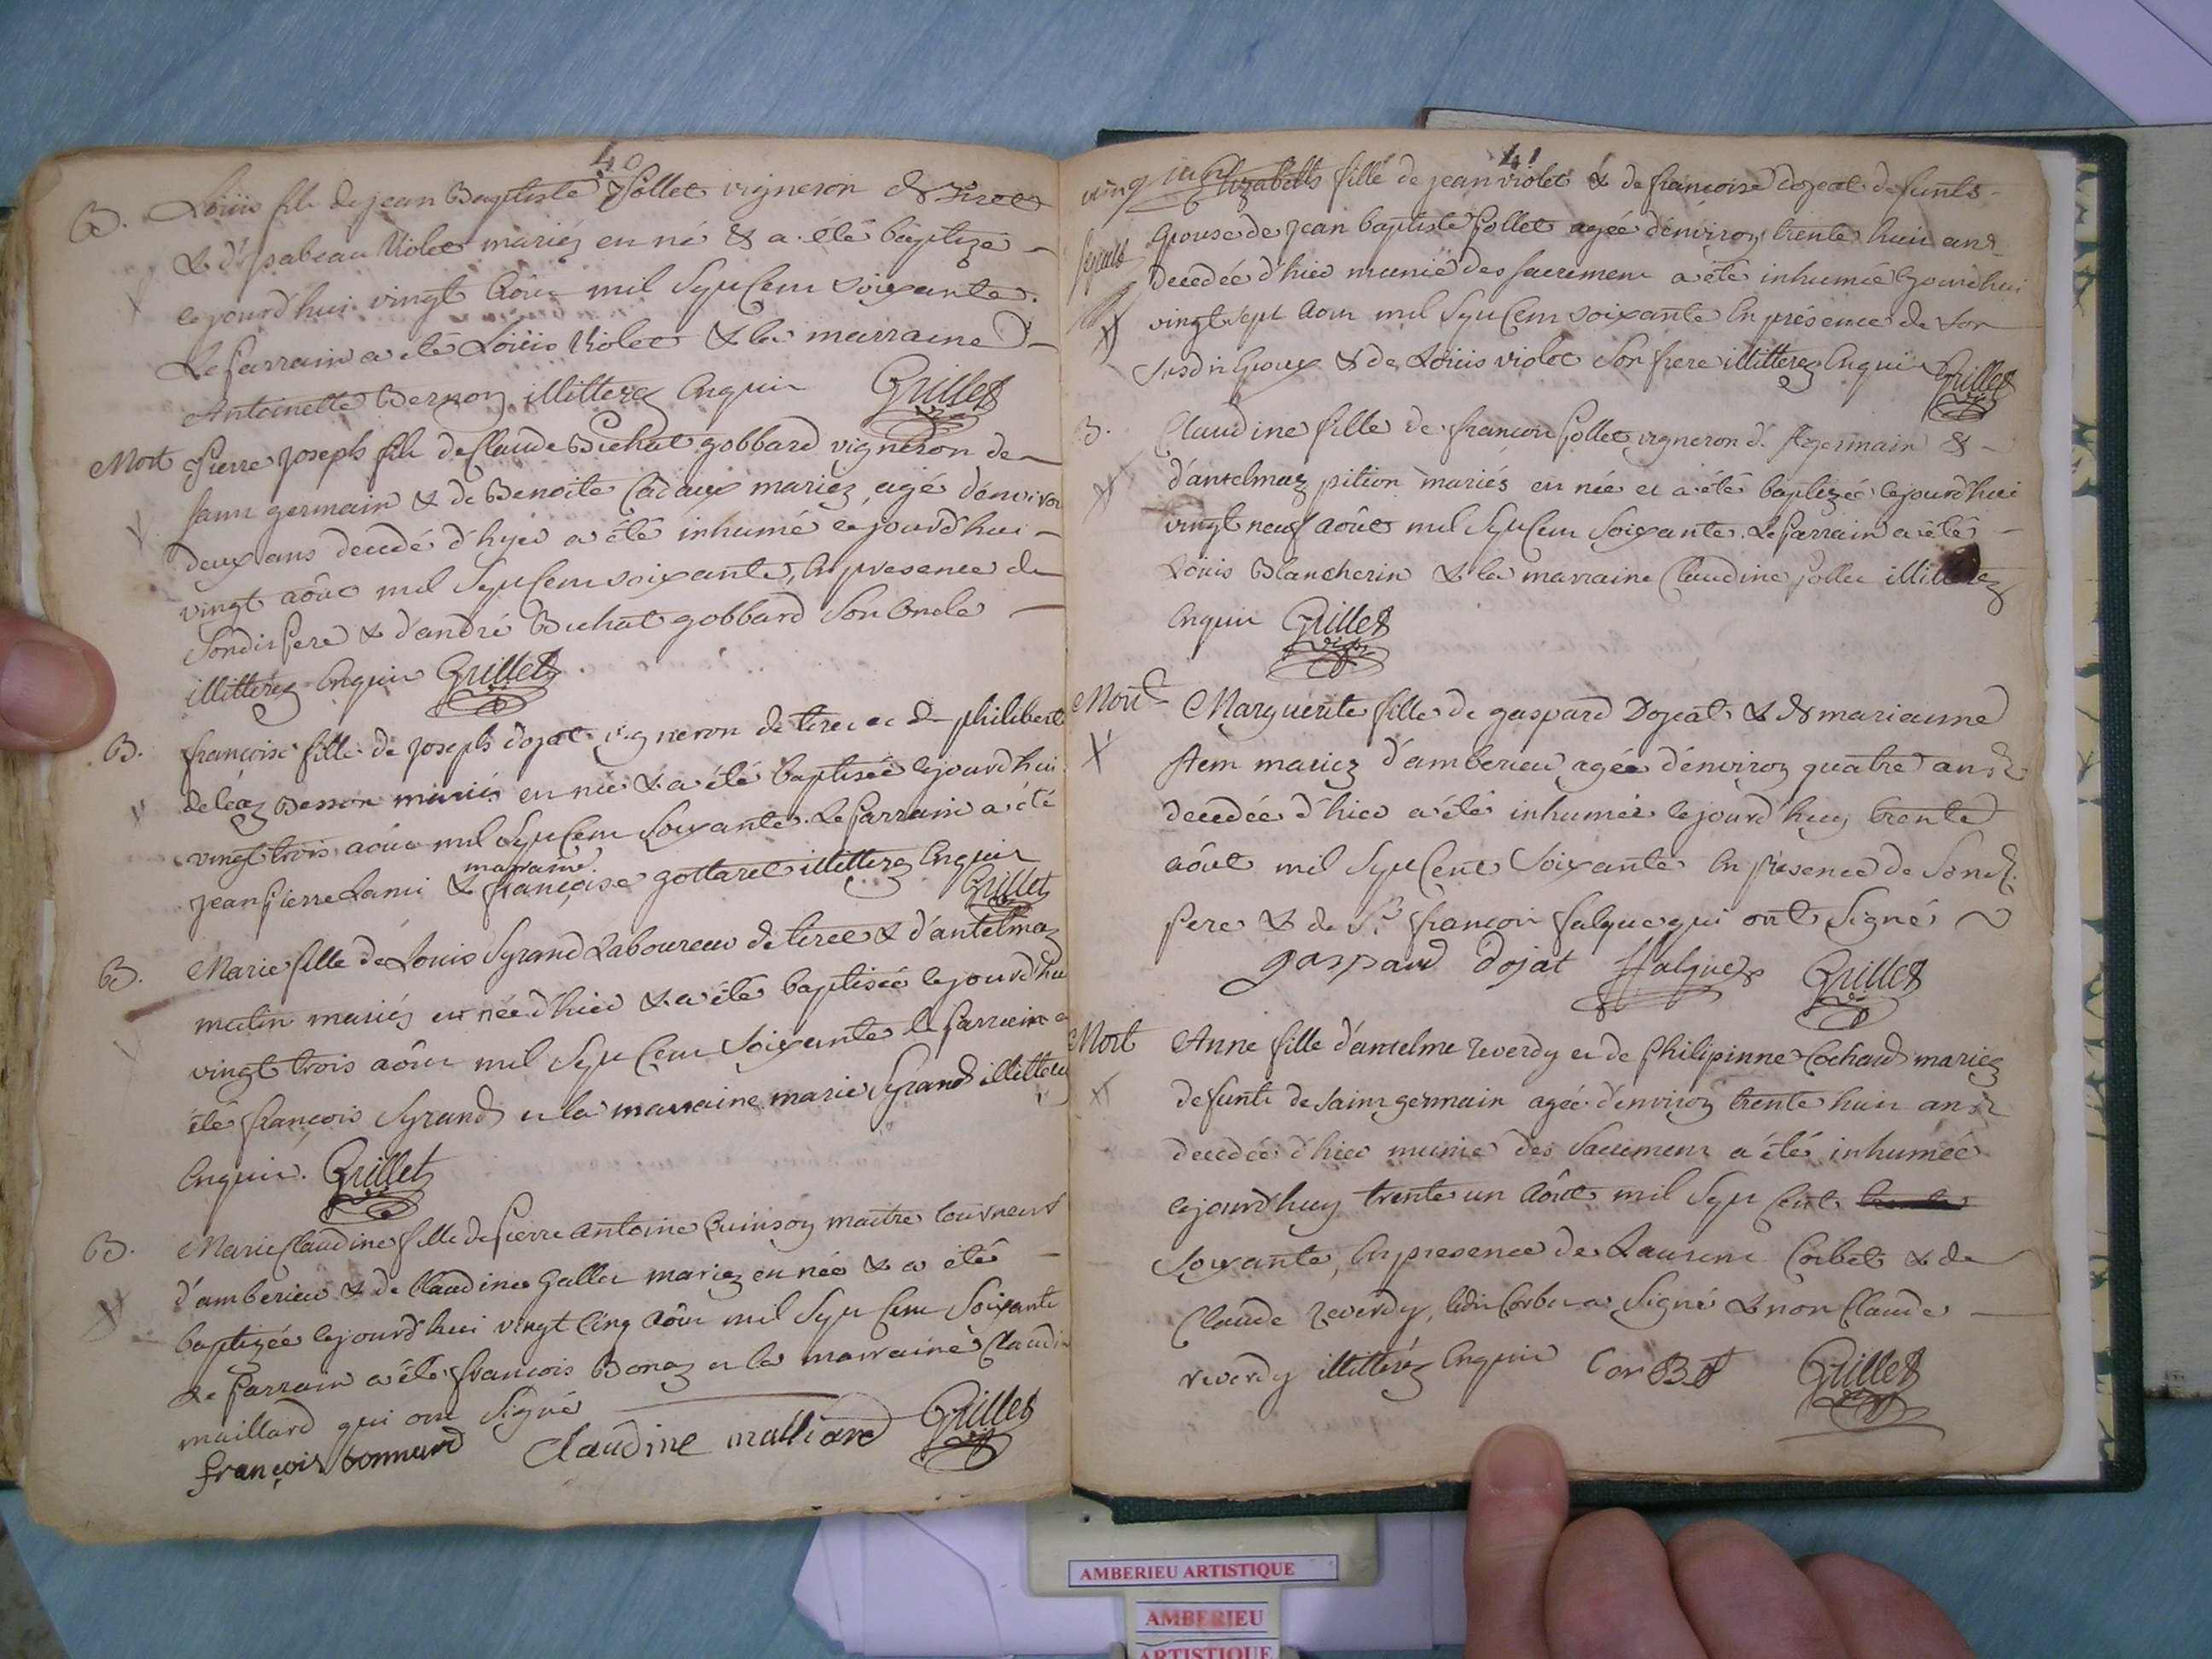 40
B. Loüis fils de jean Baptiste Jollet vigneron de tiret
& d'ysabeau Violet mariéz est né & a été baptizé
cejourd'hui vingt Aôut mil Sept Cent Soixante.
Le Parrain a été Loüis Violet & la marraine
Antoinette Bernon illitteréz Enquis Grillet
Mort Pierre joseph fils de Claude Bichat gobbard vigneron de
saint germain & de Benoite Cadaux mariéz, agé d'environ
deux ans decedé d'hyer a été inhumé cejourd'hui
vingt aôut mil Sept Cent soixante, En presence de
Sondit Pere & d'andré Bichat gobbard Son Oncle
illitteréz Enquis Grillet
B. françoise fille de joseph dojat vigneron de tiret et de philiberte
deléaz Besson mariés est née & a été baptisée cejourd'hui
vingt trois aôut mil Sept Cent Soixante. Le Parrain a été
marraine
jean Pierre Lami & françoise gottaret illitteréz Enquis
Grillet
B. Marie fille de Louis Syrand Laboureur de tiret & d'antelmaz
mutin mariéz est née d'hier & a été baptisée cejourd'hui
vingt trois aôut mil Sept Cent Soixante le Parrain a
été françois Syrand et la marraine marie Syrand illitteréz
Enquis. Grillet
B. Marie Claudine fille de Pierre Antoine Quinson maitre tourneur
d'amberieu & de Claudine Gallet mariez est née & a été
baptizée cejourd'hui vingt Cinq Aôut mil Sept Cent Soixante
Le Parrain a été françois Bonaz et la marraine Claudine
maillard qui ont Signé
françois bonnard Claudine malliard Grillet
41
Elizabeth fille de jean violet & de françoise dojeat defunts
Epouse de jean baptiste Jollet agée d'environ trente huit ans
decedée d'hier munie des sacrements a été inhumée cejourd'hui
vingt sept Aout mil Sept Cent soixante En présence de son
susdit Epoux & de Loüis violet Son frere illitterez Enquis Grillet
B. Claudine fille de françois Jollet vigneron de St germain &
d'antelmaz pition mariés est née et a été baptizée cejourd'hui
vingt neuf aôut mil Sept Cent Soixante. Le Parrain a été
Loüis Blancherin & la marraine Claudine Jollet illitteréz
Enquis Grillet
Mort Marguerite fille de gaspard Dojeat & de marianne
Stem mariez d'amberieu agée d'environ quatre ans
decedée d'hier a été inhumée cejourd'huy trente
aôut mil Sept Cent Soixante En présence de Sond.
Pere & de Sr. françois falque qui ont Signé
gaspard dojat ffalque Grillet
Mort Anne fille d'antelme reverdy et de Philipinne Cochard mariez
defunts de saint germain agée d'environ trente huit ans
decedée d'hier munie des Sacrements a été inhumée
cejourd'huy trente un Aôut mil Sept Cent
Soixante, En presence de Laurent Corbet & de
Claude reverdy, ledit Corbet a Signé & non Claude
reverdy illitteréz Enquis Corbet Grillet
AMBERIEU ARTISTIQUE
AMBERIEU
ARTISTIQUE